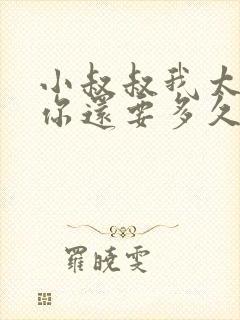 小叔叔我太
你還要多久
羅曉雯